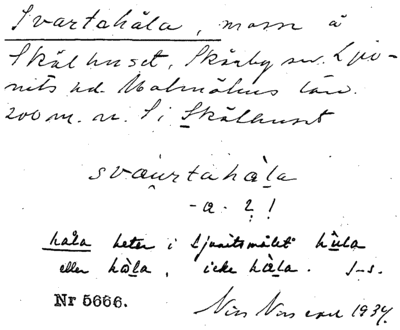 Svartahåla, mosse å
Skälhuset, Skårby sn. Lju-
nits hd. Malmöhus län.
200 m. n. S i Skälhuset
svaurtahåla
-a- ?!
håla heter i Ljunitsmålet hula
eller håla, icke håla. I-s.
Nr 5666.
1934.